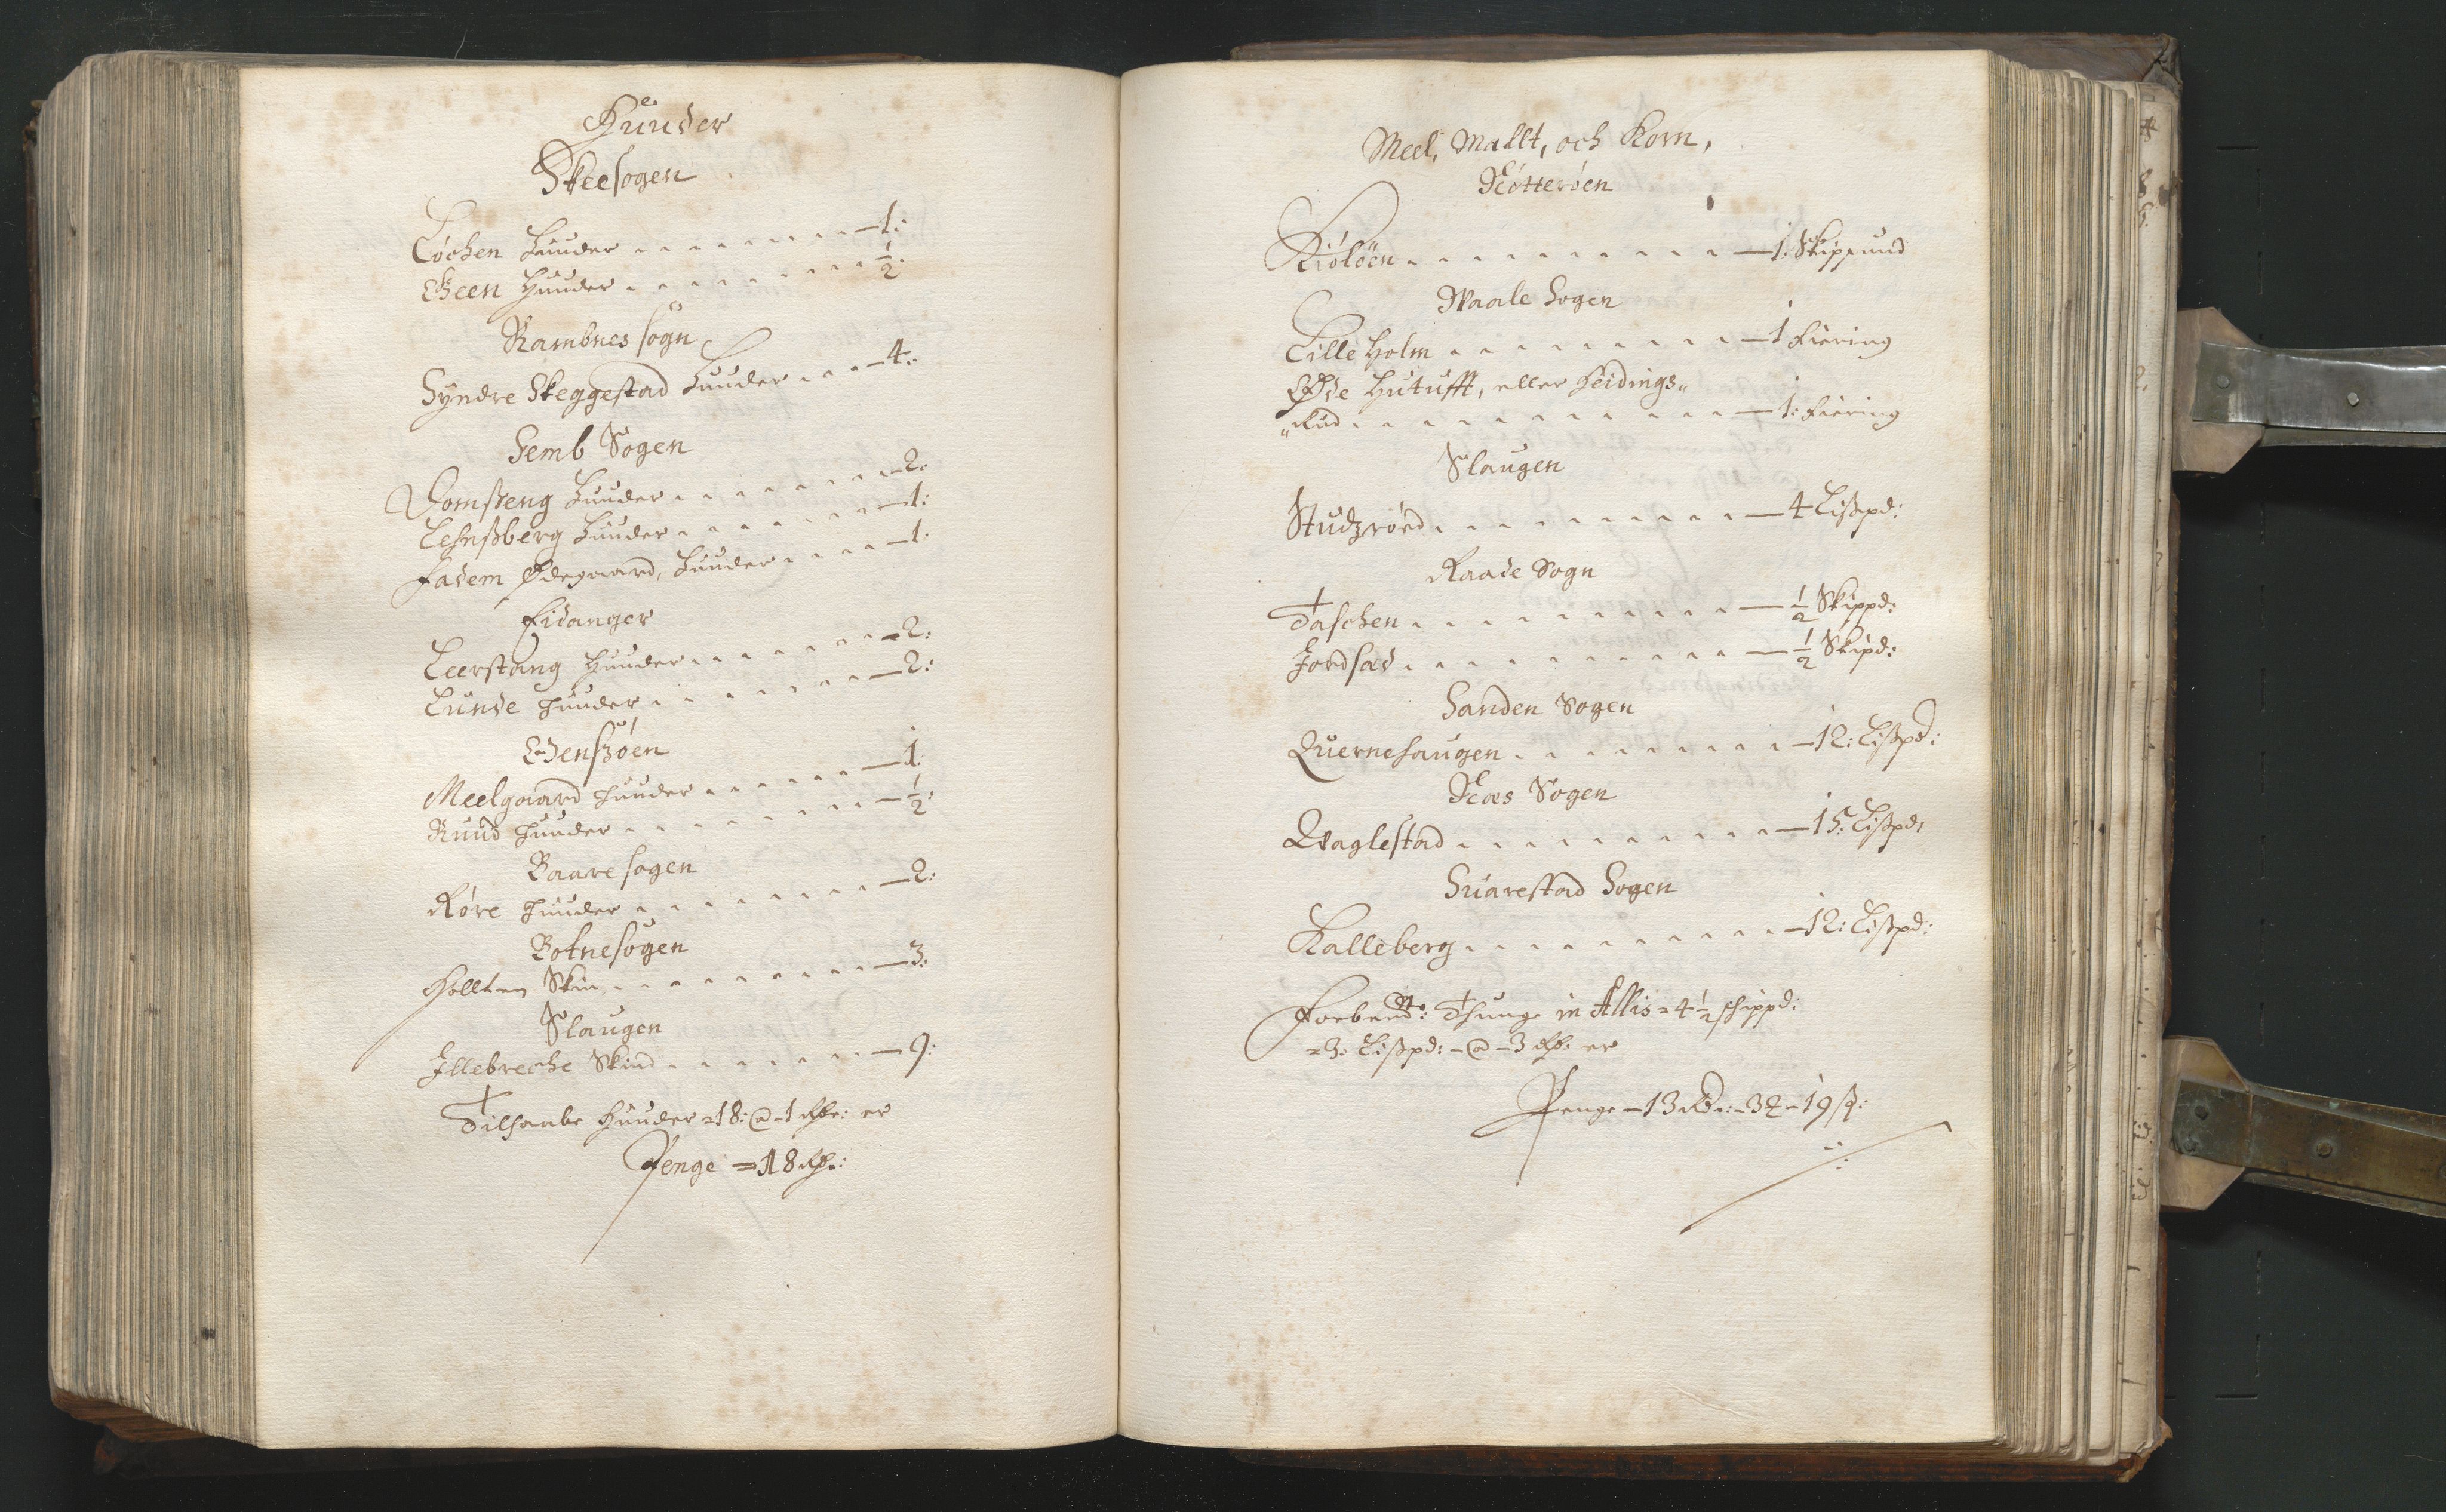 Huuder
Skeesogen
Løchen Huuder - - - - - - - - 1:
Been Huuder - - - - - - - - ½:
Rambnes sogn
Syndre Skeggestad Huuder - - - 4:
Semb Sogen
Vomsteng Huuder - - - - - - - 2:
Lehnßberg Huuder - - - - - - - 1:
Jadem Ødegaard, Huuder - - - - 1:
Eidanger
Leerstang Huuder - - - - - - - 2:
Lunde Huuder - - - - - - - 2:
Meelgaard Huuder - - - - - - 1.
Ruud Huuder - - - - - - - - ½:
Baare sogen
Røre Huuder - - - - - - - - 2:
Botnesogen
Hollten Skin - - - - - - - - 3:
Slaugen
Illebreche Skind - - - - - - - 9:
Tilhaabe Huuder - 18: @ - 1 Rdr: er
Penge = 18 Rdr:
Meel, Mallt, och Korn,
Nøtterøen
Kiøløen - - - - - - - - - 1: Skippund
Waale Sogen
Lille Holm - - - - - - - - 1 Fiering
Øde Hutufft, eller Heidings„
„Rud - - - - - - - - - - 1: Fiering
Slaugen
Studzrøed - - - - - - - - - 4 Lißpd:
Raade Sogn
Taschen - - - - - - - - - ½ Skippd:
Jordsad - - - - - - - - - ½ Skipd:
Sanden Sogen
Quernehaugen - - - - - - - - 12: Lißpd:
Næs Sogen
Qvaglestad - - - - - - - - - 15: Lißpd:
Suarestad Sogen
Kalleberg - - - - - - - - - 12: Lißpd:
Forbemt: Thunge in Allis - 4 ½ schippd:
- 3: Lißpd: - @ - 3 Rdr er
Penge - 13 Rdr: - 3 - 19 ß: